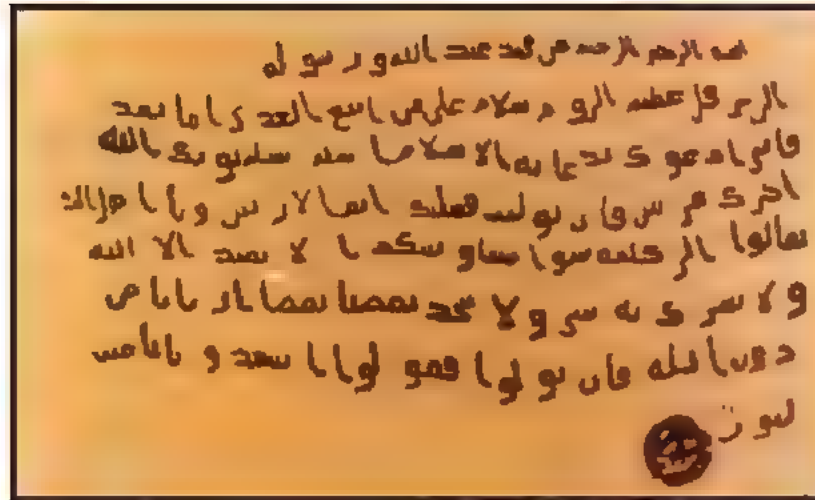 بسم الله الرحمن الرحيم من محمد عبد الله و رسو له
الى هرقل عظيم الروم سلام على من اتبع الهدى اما بعد
فانى ادعوك بدعاية الاسلام اسلم تسلم يوتك الله
اجرك مرتين فان توليت فعليك اثم الاريسين و يا اهل الك
تعالوا الى كلمة سوا بيننا و بينكم ا لا نعبد الا الله
و لا نشرك به شى و لا يتخذ بعضنا بعضا اربابا من
دون الله فان تولوا فقولوا اشهدوا بانا مس
لمون